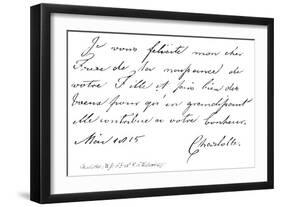 Je vous felicite mon cher
Frere de la naissance de
votre Fille et fais bien des
voeux pour qu'en grandissant
elle contribue a votre bonheur.
Mai 1815
Charlotte.